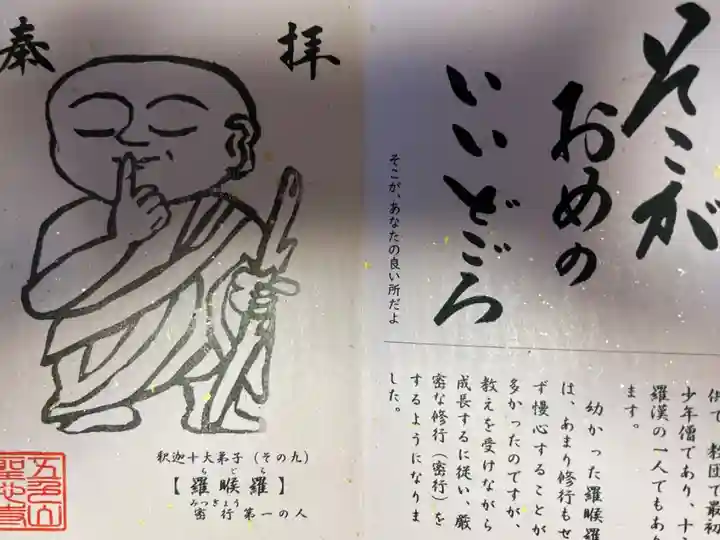 そこが
おめの
いいどごろ
そこが、あなたの良い所だよ
少年僧であり、十
羅漢の一人でもあり
ます。
幼かった羅睺羅
は、あまり修行もせ
ず慢心することが
多かったのですが、
教えを受けながら
成長するに従い、厳
密な修行（密行）を
するようになりま
した。
奉拝
釈迦十大弟子（その九）
【羅睺羅】
らごら
密行第一の人
みつぎょう